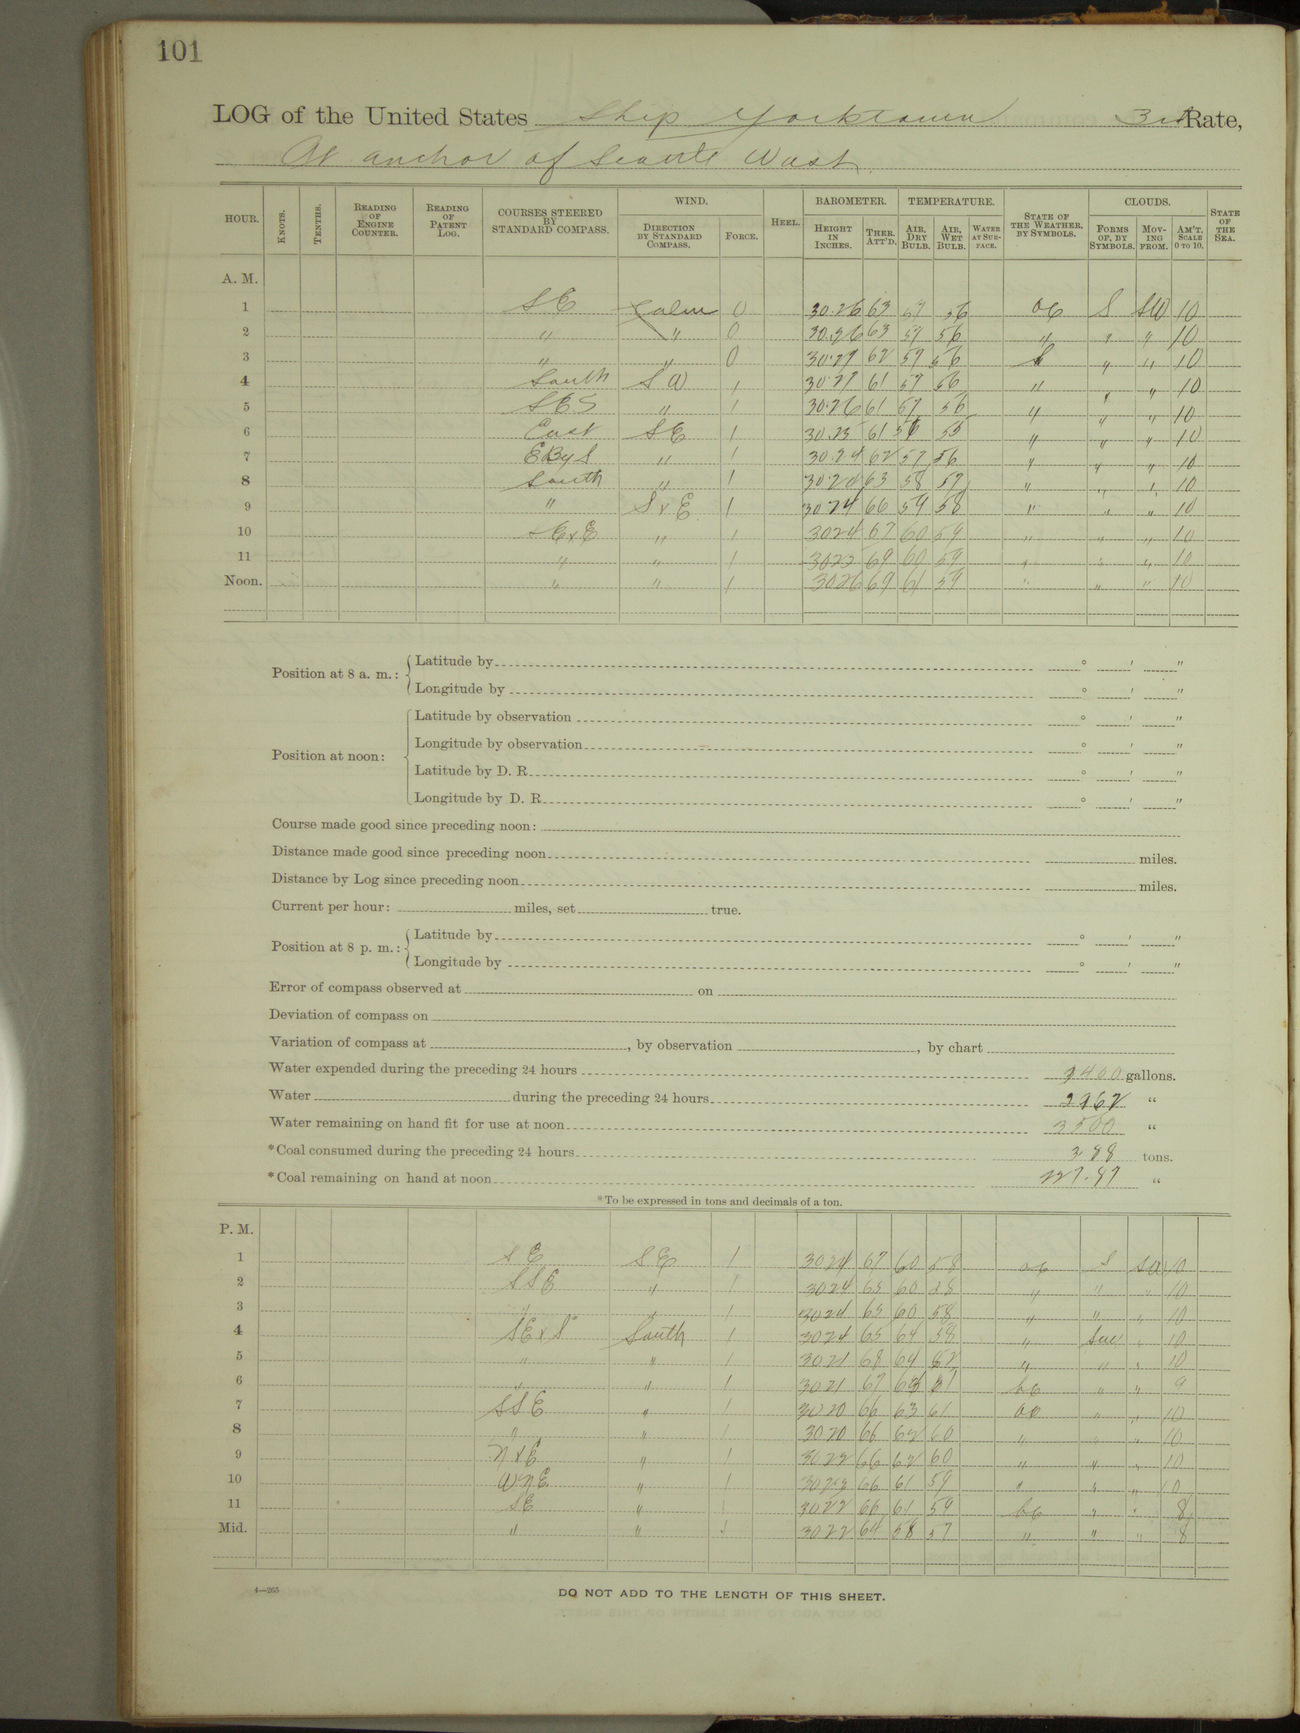 101
LOG of the United States Ship Yorktown 3rd Rate,
At anchor of Seattle Wash.
HOUR. KNOTS. TENTHS. READING OF ENGINE COUNTER. READING OF PATENT LOG. COURSES STEERED BY STANDARD COMPASS. WIND. DIRECTION BY STANDARD COMPASS. FORCE. HEEL. BAROMETER. HEIGHT IN INCHES. THER. ATT'D. TEMPERATURE. AIR, DRY BULB. AIR, WET BULB. WATER AT SURFACE. STATE OF THE WEATHER, BY SYMBOLS. CLOUDS. FORMS OF, BY SYMBOLS. MOVING FROM. AM'T, SCALE 0 TO 10. STATE OF THE SEA.
A. M.
1 SE Calm 0 30.26 63 57 56 oc S SW 10
2 " " 0 30.26 63 57 56 " " " 10
3 " " 0 30.27 62 57 56 " " 10
4 South SW 1 30.27 61 57 56 " " " 10
5 SES " 1 30.26 61 57 56 " " " 10
6 East SE 1 30.23 61 56 55 " " " 10
7 EByS " 1 30.24 62 57 56 " " " 10
8 South " 1 30.24 63 58 57 " " " 10
9 " SxE 1 30.24 66 59 58 " " " 10
10 SExE " 1 3024 67 60 59 " " " 10
11 " " 1 3025 69 60 59 " " " 10
Noon. " " 1 3026 69 61 59 " " " 10
Position at 8 a. m.: Latitude by ° ' "
Longitude by ° ' "
Position at noon: Latitude by observation ° ' "
Longitude by observation ° ' "
Latitude by D. R. ° ' "
Longitude by D. R. ° ' "
Course made good since preceding noon:
Distance made good since preceding noon miles.
Distance by Log since preceding noon miles.
Current per hour: miles, set true.
Position at 8 p. m.: Latitude by ° ' "
Longitude by ° ' "
Error of compass observed at on
Deviation of compass on
Variation of compass at , by observation , by chart
Water expended during the preceding 24 hours 2400 gallons.
Water during the preceding 24 hours "
Water remaining on hand fit for use at noon 3500 "
*Coal consumed during the preceding 24 hours 3.88 tons.
*Coal remaining on hand at noon 227.87 "
*To be expressed in tons and decimals of a ton.
P. M.
1 SE SE 1 3024 67 60 58 oc S SW 10
2 SSE " 1 3024 65 60 58 " " " 10
3 " " 1 3024 65 60 58 " " " 10
4 SExS South 1 3024 65 64 58 " " 10
5 " " 1 3021 68 64 62 " " " 10
6 " " 1 3021 67 63 61 bc " " 9
7 SSE " 1 3020 66 63 61 oc " " 10
8 " " 1 3020 66 62 60 " " " 10
9 NxE " 1 3022 66 62 60 " " " 10
10 WNE " 1 3022 66 61 59 " " " 10
11 SE " 1 3022 66 61 59 bc " " 8
Mid. " " 1 3022 64 58 57 " " " 8
4—265
DO NOT ADD TO THE LENGTH OF THIS SHEET.